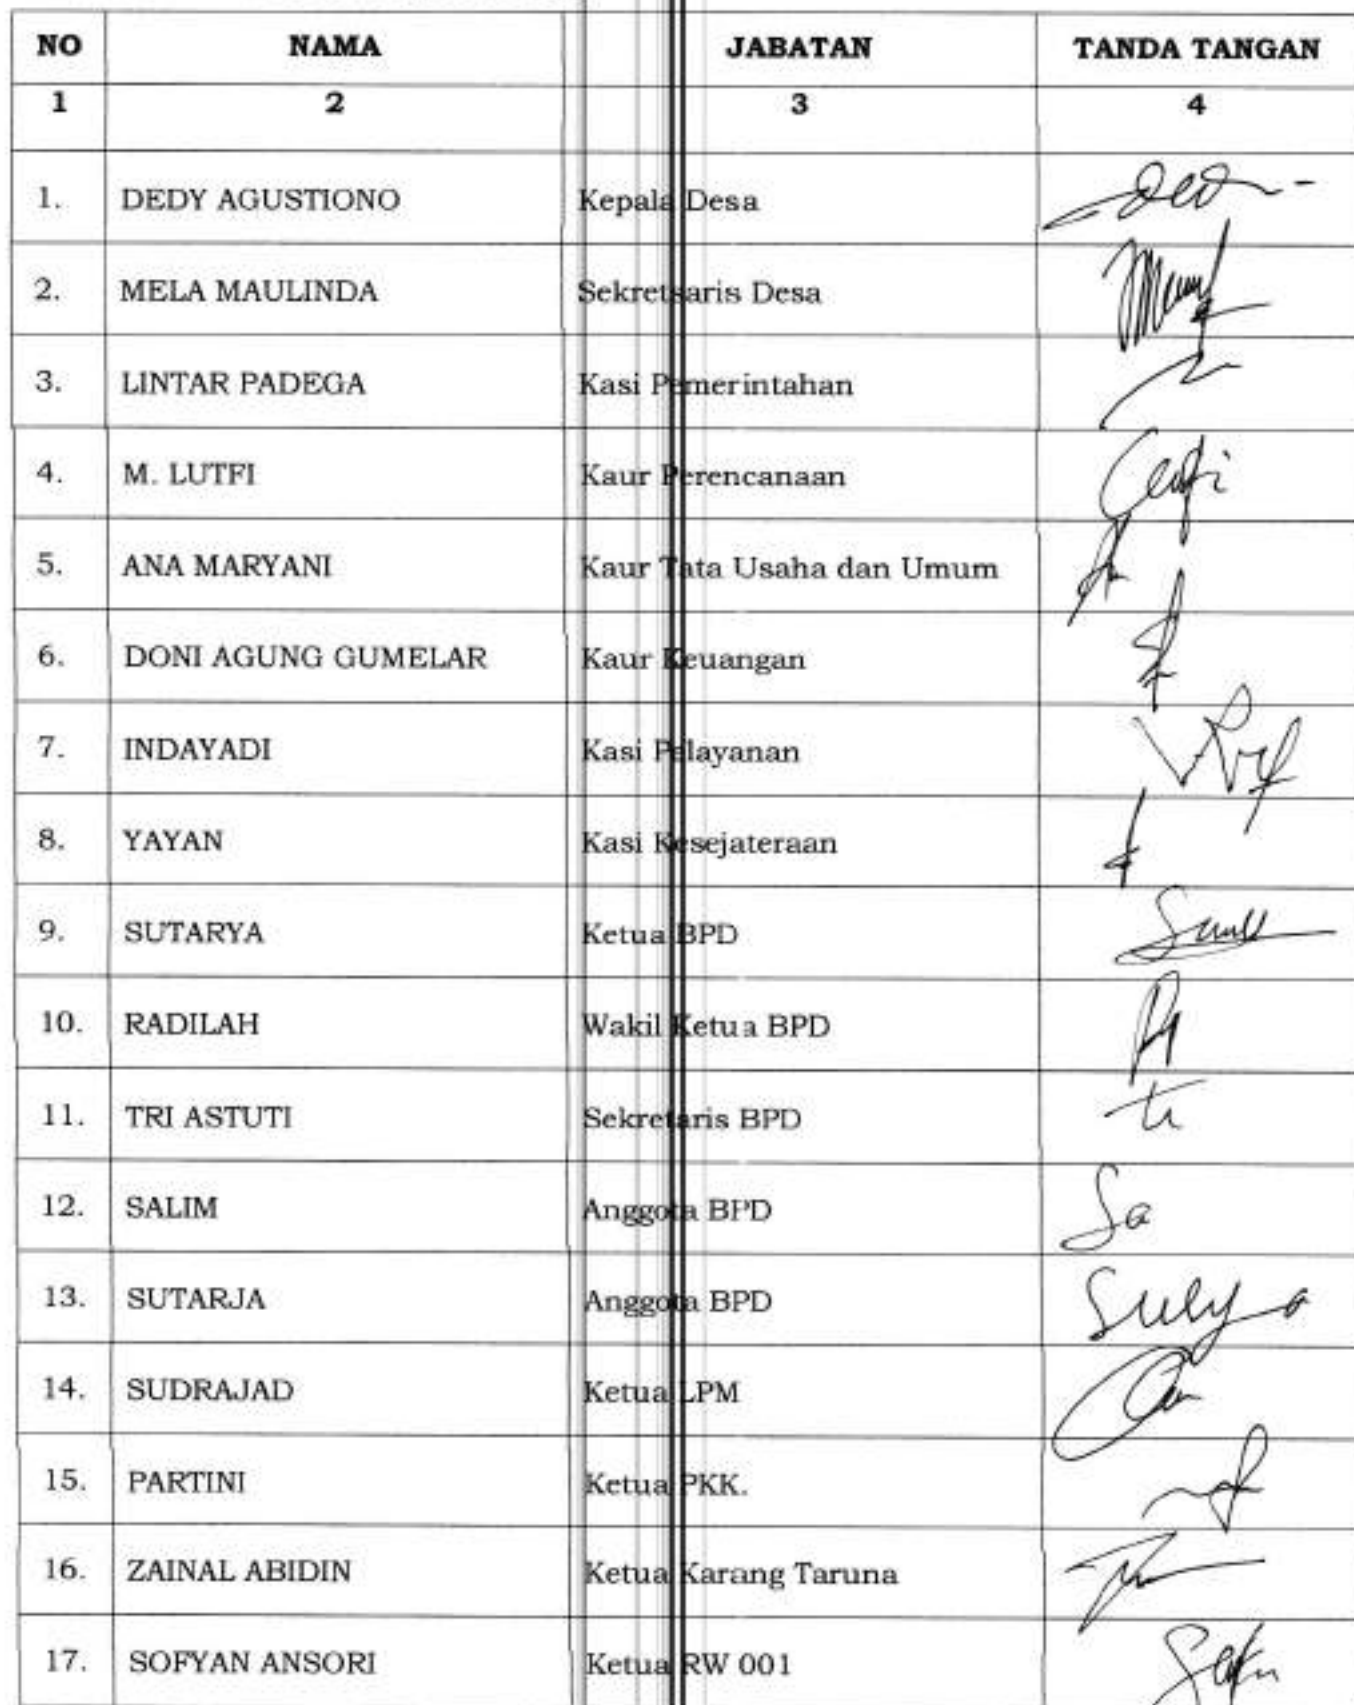 NO NAMA JABATAN TANDA TANGAN
1 2 3 4
1. DEDY AGUSTIONO Kepala Desa
2. MELA MAULINDA Sekretsaris Desa
3. LINTAR PADEGA Kasi Pemerintahan
4. M. LUTFI Kaur Perencanaan
5. ANA MARYANI Kaur Tata Usaha dan Umum
6. DONI AGUNG GUMELAR Kaur Keuangan
7. INDAYADI Kasi Pelayanan
8. YAYAN Kasi Kesejateraan
9. SUTARYA Ketua BPD
10. RADILAH Wakil Ketua BPD
11. TRI ASTUTI Sekretaris BPD
12. SALIM Anggota BPD Sa
13. SUTARJA Anggota BPD
14. SUDRAJAD Ketua LPM
15. PARTINI Ketua PKK.
16. ZAINAL ABIDIN Ketua Karang Taruna
17. SOFYAN ANSORI Ketua RW 001